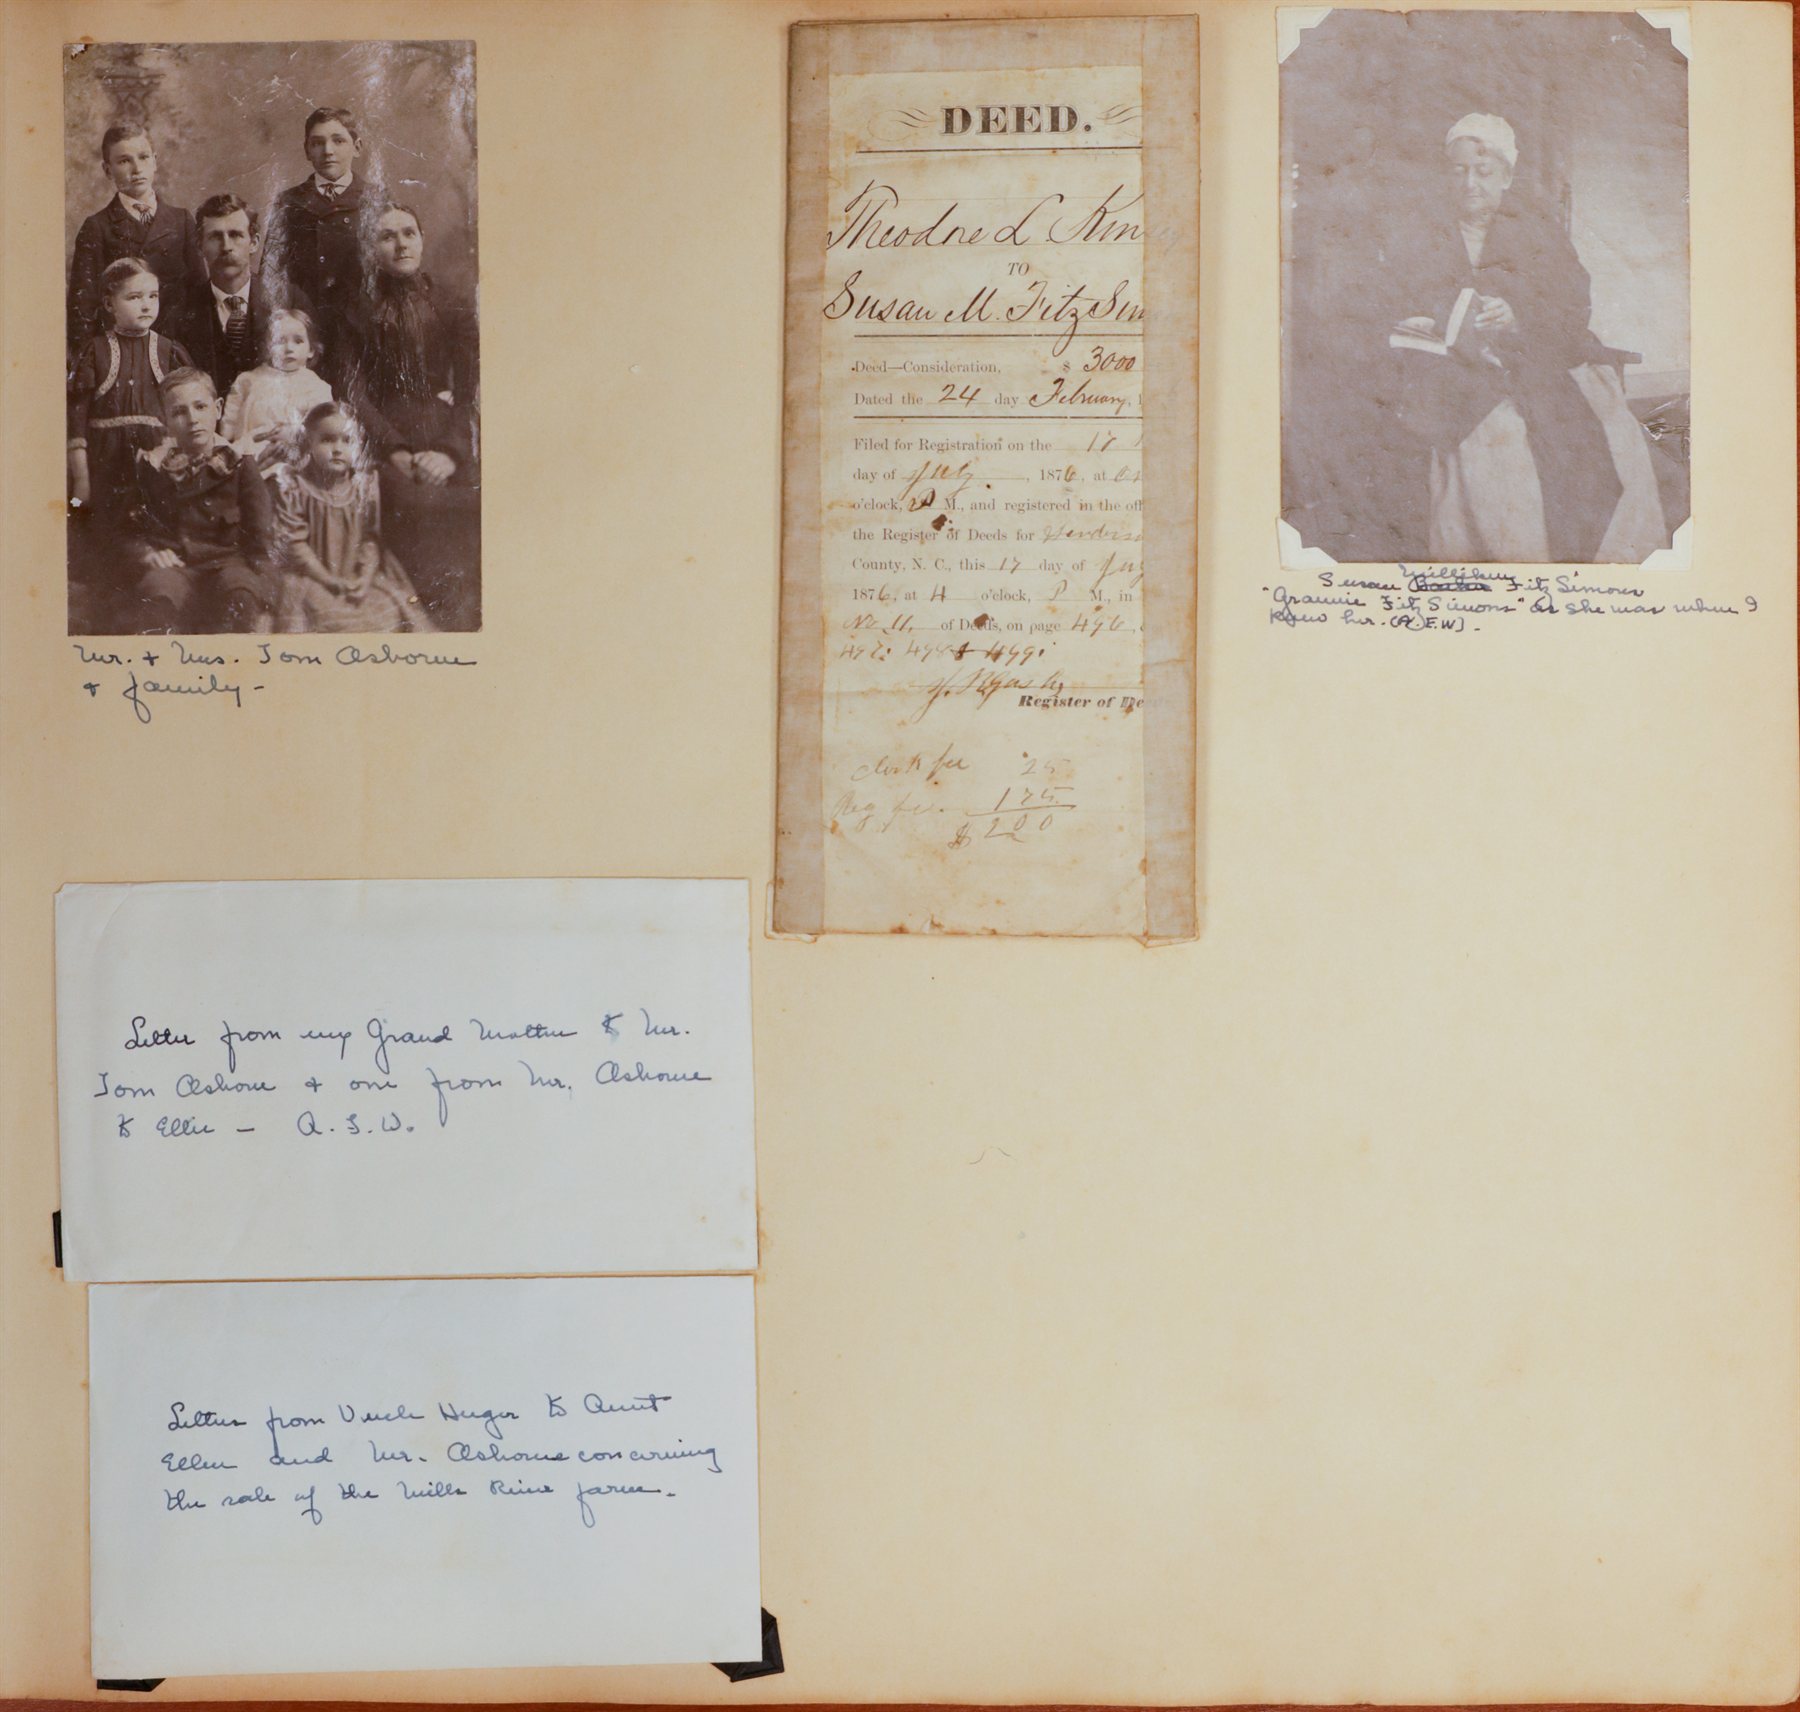 Mr. & Mrs. Tom Osborne
& family -
DEED.
Theodore L. Kin
TO
Susan M. FitzSim
Deed—Consideration, $ 3000
Dated the 24 day February, 1
Filed for Registration on the 17
day of July, 1876, at
o'clock, P M., and registered in the off
the Register of Deeds for Henderso
County, N. C., this 17 day of July
1876, at 4 o'clock, P M., in
No 11, of Deeds, on page 496,
497, 498 & 499.
Register of De
Clerk fee 25
Reg fee. 175
$ 200
Milliken
Susan Fitz Simons
"Grannie Fitz Simons" as she was when I
knew her. (A.E.W.) -
Letter from my Grand Mother to Mr.
Tom Osborne & one from Mr. Osborne
to Ellen - A. F. W.
Letters from Uncle Huger to Aunt
Ellen and Mr. Osborne concerning
the sale of the Mills River farm -